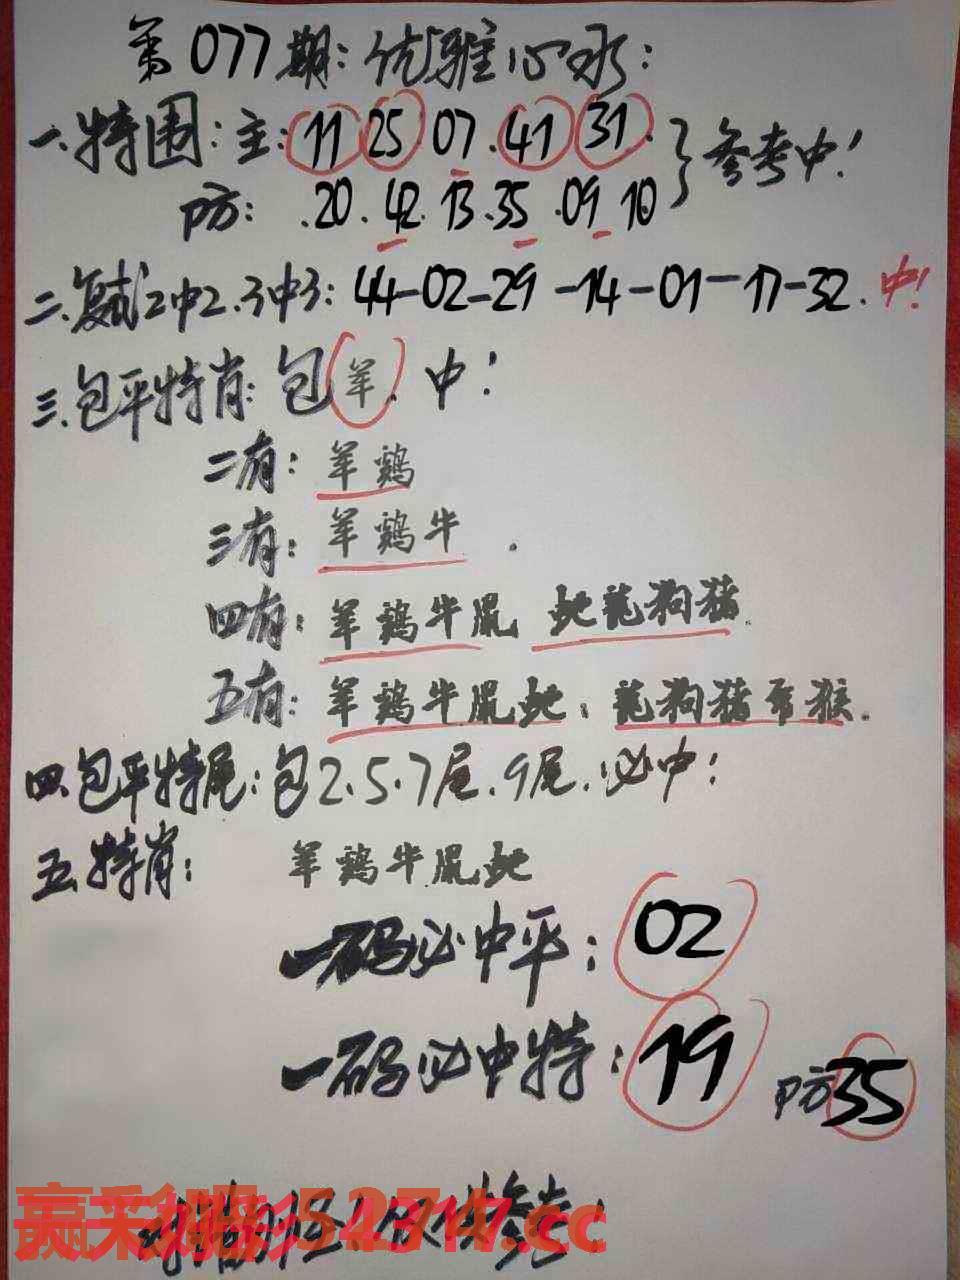 第077期：优雅心水：
一.特围：主：11 25 07.41 31.
防：.20.42.13.35.09 10
}参考中！
二.复试2中2.3中3：44-02-29-14-01-17-32.中！
三.包平特肖：包羊.中！
二有：羊鸡
三有：羊鸡牛.
四有：羊鸡牛鼠 蛇龍狗猪.
五有：羊鸡牛鼠蛇：龍狗猪 猴.
四.包平特尾：包2.5.7尾.9尾.必中：
五.特肖：羊鸡牛.鼠蛇
一码必中平：02
一码必中特：19 防35
赢彩 :52717.cc
参考